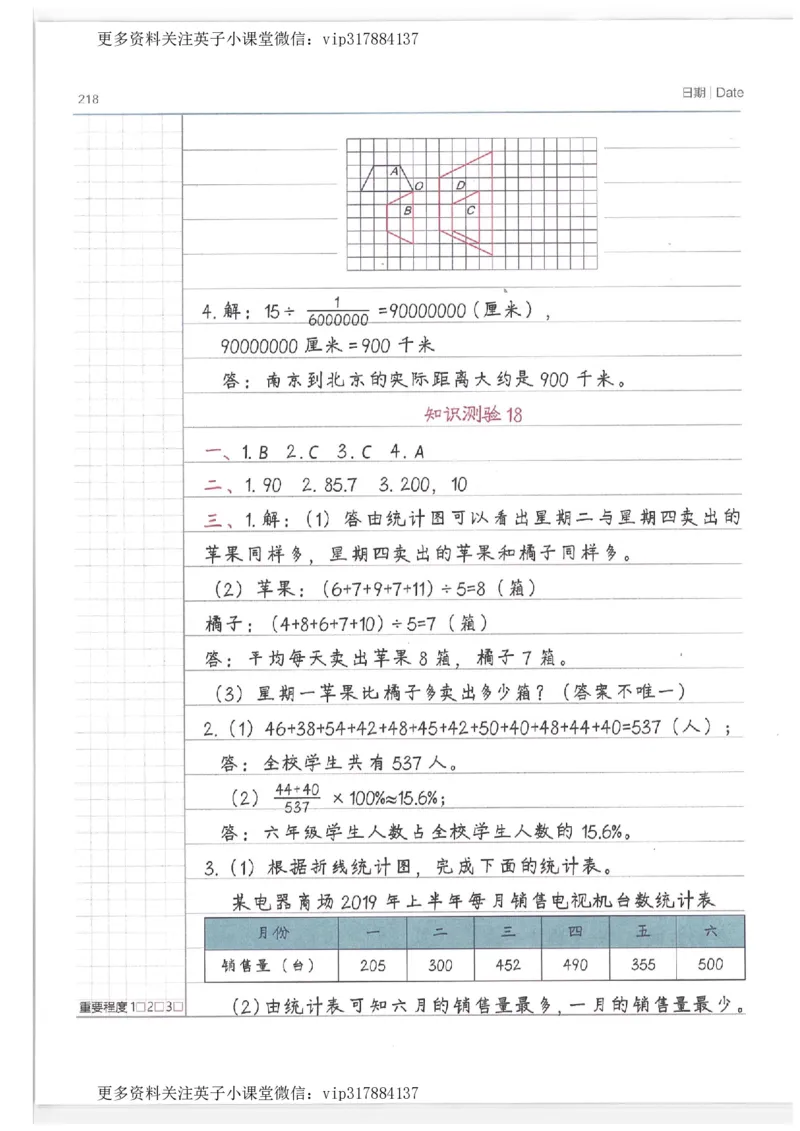 更多资料关注英子小课堂微信：vip317884137
218
日期 | Date
A
O
D
B
C
4.解：15÷ 1/6000000 =90000000（厘米），
90000000 厘米=900 千米
答：南京到北京的实际距离大约是 900 千米。
知识测验18
一、1.B 2.C 3.C 4.A
二、1.90 2.85.7 3.200，10
三、1.解：（1）答由统计图可以看出星期二与星期四卖出的
苹果同样多，星期四卖出的苹果和橘子同样多。
（2）苹果：（6+7+9+7+11）÷5=8（箱）
橘子：（4+8+6+7+10）÷5=7（箱）
答：平均每天卖出苹果 8 箱，橘子 7 箱。
（3）星期一苹果比橘子多卖出多少箱？（答案不唯一）
2.（1）46+38+54+42+48+45+42+50+40+48+44+40=537（人）；
答：全校学生共有 537 人。
（2） 44+40/537 ×100%≈15.6%；
答：六年级学生人数占全校学生人数的 15.6%。
3.（1）根据折线统计图，完成下面的统计表。
某电器商场 2019 年上半年每月销售电视机台数统计表
月份 一 二 三 四 五 六
销售量（台） 205 300 452 490 355 500
重要程度 1□2□3□
（2）由统计表可知六月的销售量最多，一月的销售量最少。
更多资料关注英子小课堂微信：vip317884137